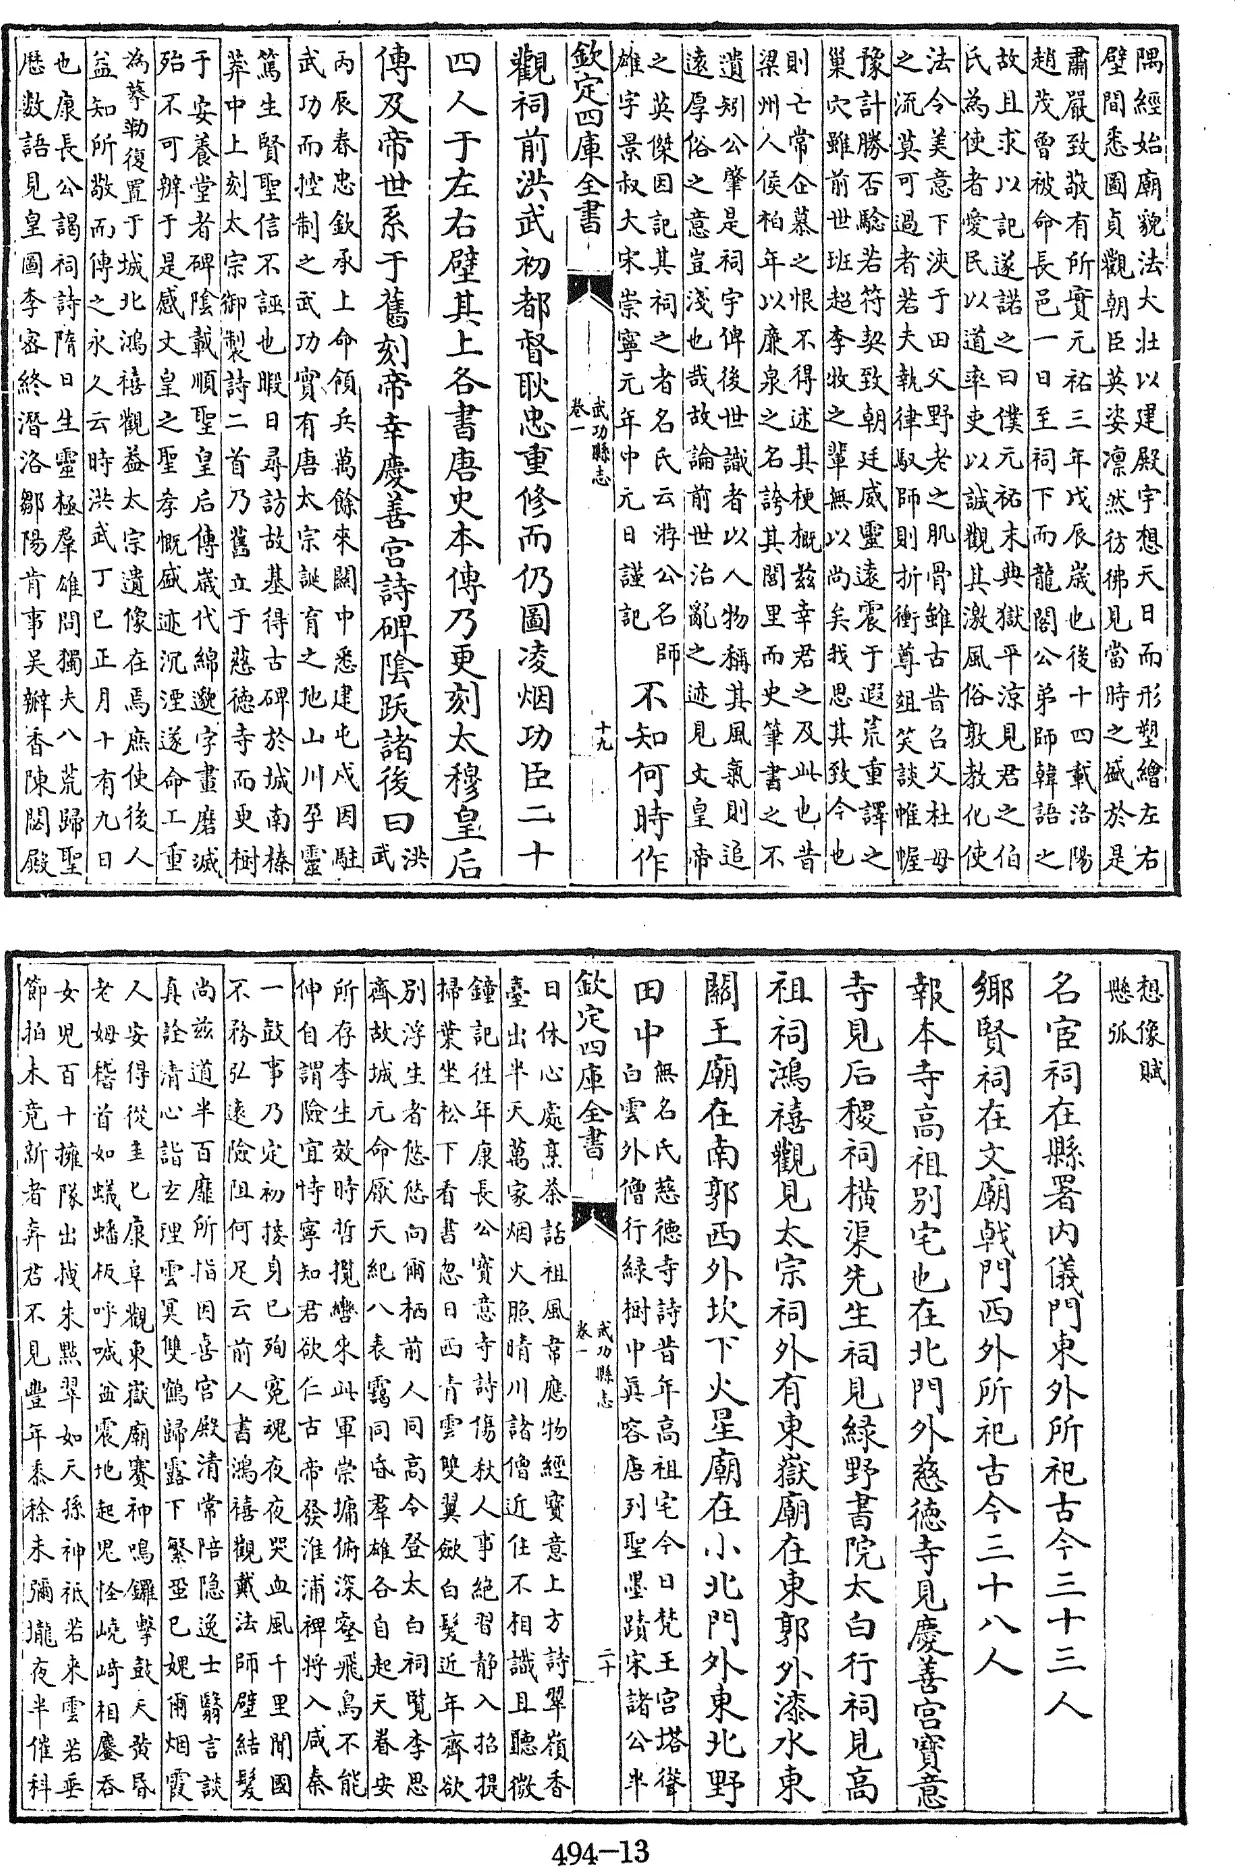 隅經始廟貌法大壯以建殿宇想天日而形塑繪左右
壁間悉圖貞觀朝臣英姿凛然彷彿見當時之盛於是
肅嚴致敬有所實元祐三年戊辰歲也後十四載洛陽
趙茂曾被命長邑一日至祠下而龍閣公弟師韓語之
故且求以記遂諾之曰僕元祐末典獄平涼見君之伯
氏為使者愛民以道率吏以誠觀其激風俗敦教化使
法令美意下浹于田父野老之肌骨雖古昔召父杜母
之流莫可過者若夫執律馭師則折衝尊俎笑談帷幄
豫計勝否驗若符契致朝廷威靈遠震于遐荒重譯之
巢穴雖前世班超李牧之輩無以尚矣我思其致今也
則亡常企慕之恨不得述其梗概兹幸君之及此也昔
梁州人侯柏年以廉泉之名誇其閭里而史筆書之不
遺矧公肇是祠宇俾後世識者以人物稱其風氣則追
遠厚俗之意豈淺也哉故論前世治亂之迹見文皇帝
之英傑因記其祠之者名氏云游公名師
雄字景叔大宋崇寧元年中元日謹記
不知何時作
欽定四庫全書
武功縣志
卷一
十九
觀祠前洪武初都督耿忠重修而仍圖凌烟功臣二十
四人于左右壁其上各書唐史本傳乃更刻太穆皇后
傳及帝世系于舊刻帝幸慶善宮詩碑陰跋諸後曰
洪
武
丙辰春忠欽承上命領兵萬餘來關中悉建屯戍因駐
武功而控制之武功實有唐太宗誕育之地山川孕靈
篤生賢聖信不誣也暇日尋訪故基得古碑於城南榛
莽中上刻太宗御製詩二首乃舊立于慈德寺而更樹
于安養堂者碑陰載順聖皇后傳歲代綿邈字畫磨滅
殆不可辨于是感文皇之聖孝慨盛迹沉湮遂命工重
為摹勒復置于城北鴻禧觀益太宗遺像在焉庶使後人
益知所敬而傳之永久云時洪武丁巳正月十有九日
也康長公謁祠詩隋日生靈極羣雄問獨夫八荒歸聖
歷数語見皇圖李密終潛洛鄒陽肯事吴瓣香陳閟殿
想像賦
懸弧
名宦祠在縣署内儀門東外所祀古今三十三人
鄉賢祠在文廟戟門西外所祀古今三十八人
報本寺高祖别宅也在北門外慈德寺見慶善宮寶意
寺見后稷祠橫渠先生祠見緑野書院太白行祠見高
祖祠鴻禧觀見太宗祠外有東嶽廟在東郭外漆水東
關王廟在南郭西外坎下火星廟在小北門外東北野
田中
無名氏慈德寺詩昔年高祖宅今日梵王宮塔聳
白雲外僧行緑樹中真容唐列聖墨蹟宋諸公半
欽定四庫全書
武功縣志
卷一
二十
日休心處烹茶話祖風韋應物經寶意上方詩翠嶺香
臺出半天萬家烟火照晴川諸僧近住不相識且聽微
鐘記徃年康長公寶意寺詩傷秋人事絕習静入招提
掃葉坐松下看書忽日西青雲雙翼斂白髪近年齊欲
别浮生者悠悠向爾栖前人同高令登太白祠覧李思
齊故城元命厭天紀八表靄同昏羣雄各自起天眷安
所存李生效時哲攬轡來此軍崇墉俯深壑飛鳥不能
伸自謂險宜恃寧知君欲仁古帝發淮浦裨將入咸秦
一鼓事乃定初接身已殉寃魂夜夜哭血風千里聞國
不務弘遠險阻何足云前人書鴻禧觀戴法師壁結髪
尚兹道半百靡所指因喜宮殿清常陪隐逸士翳言談
真詮清心詣玄理雲冥雙鶴歸露下繁星已媿爾烟霞
人安得從圭匕康阜觀東嶽廟賽神鳴鑼擊鼓天黄昏
老姆稽首如蟻蟠板呼喊盆震地起鬼怪嶢崎相鏖吞
女児百十擁隊出拽朱點翠如天孫神袛若来雲若垂
節拍未竟新者奔君不見豐年黍稌未彌攏夜半催科
494-13